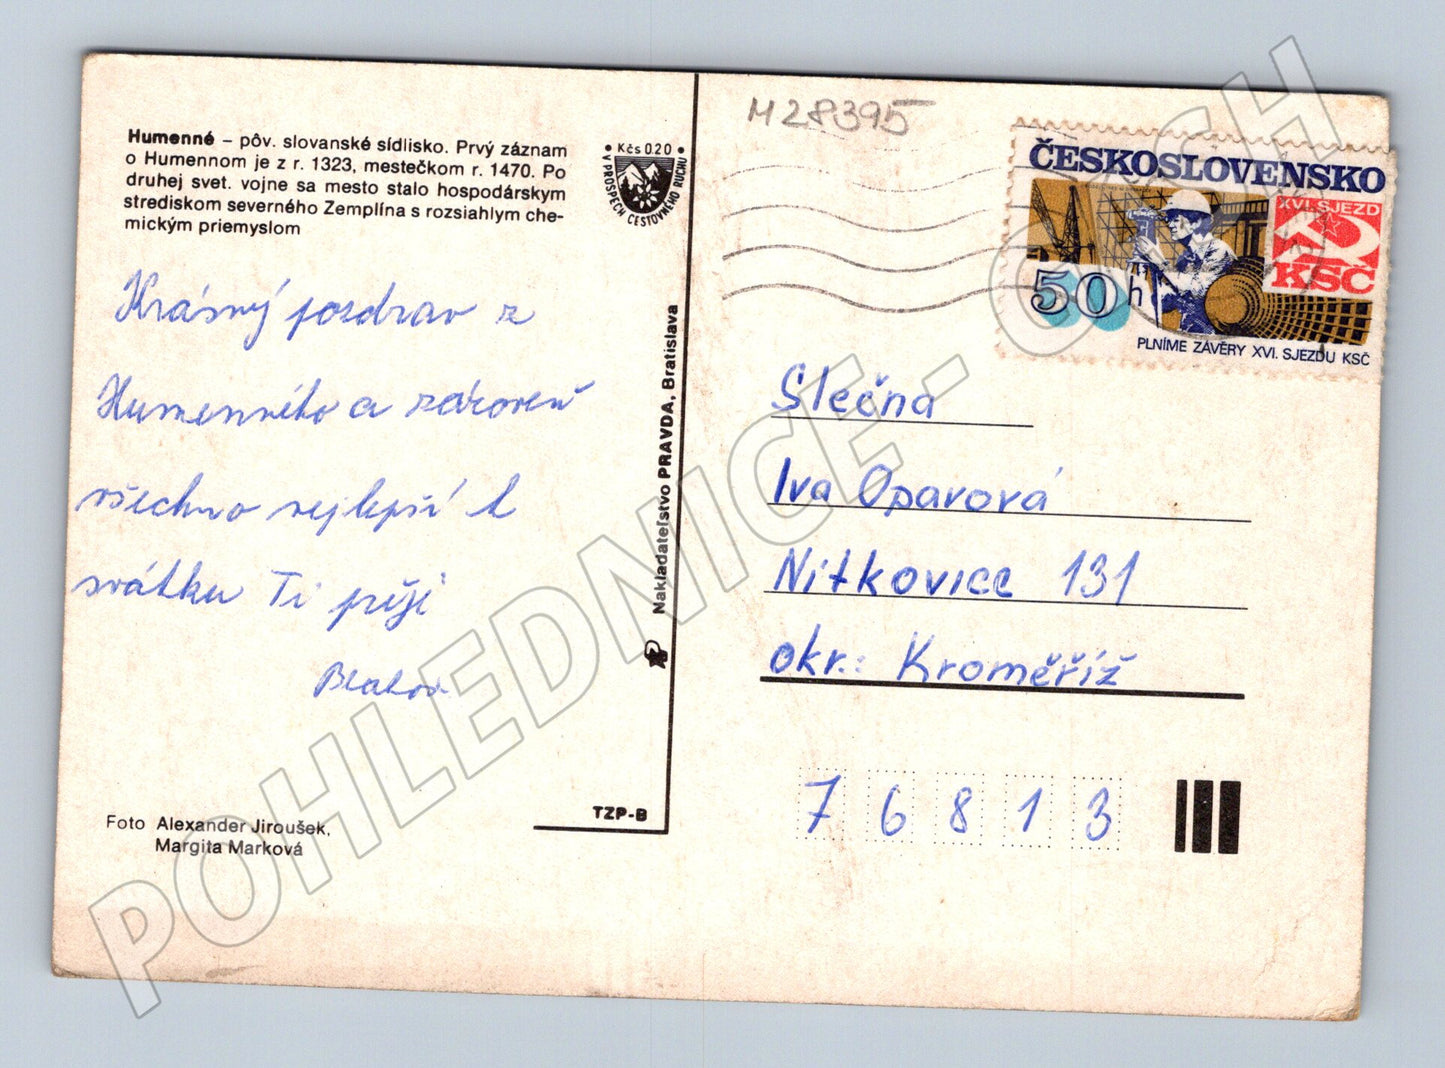 Humenné – pôv. slovanské sídlisko. Prvý záznam
o Humennom je z r. 1323, mestečkom r. 1470. Po
druhej svet. vojne sa mesto stalo hospodárskym
strediskom severného Zemplína s rozsiahlym che-
mickým priemyslom
• Kčs 0.20 •
V PROSPECH CESTOVNÉHO RUCHU
Krásný pozdrav z
Humenného a zároveň
všechno nejlepší k
svátku Ti přeji
Foto Alexander Jiroušek,
Margita Marková
TZP-B
Nakladateľstvo PRAVDA, Bratislava
M28395
ČESKOSLOVENSKO
XVI. SJEZD
KSČ
50h
PLNÍME ZÁVĚRY XVI. SJEZDU KSČ
Slečna
Iva Oparová
Nítkovice 131
okr.: Kroměříž
76813
POHLEDNICE - CZ/SH